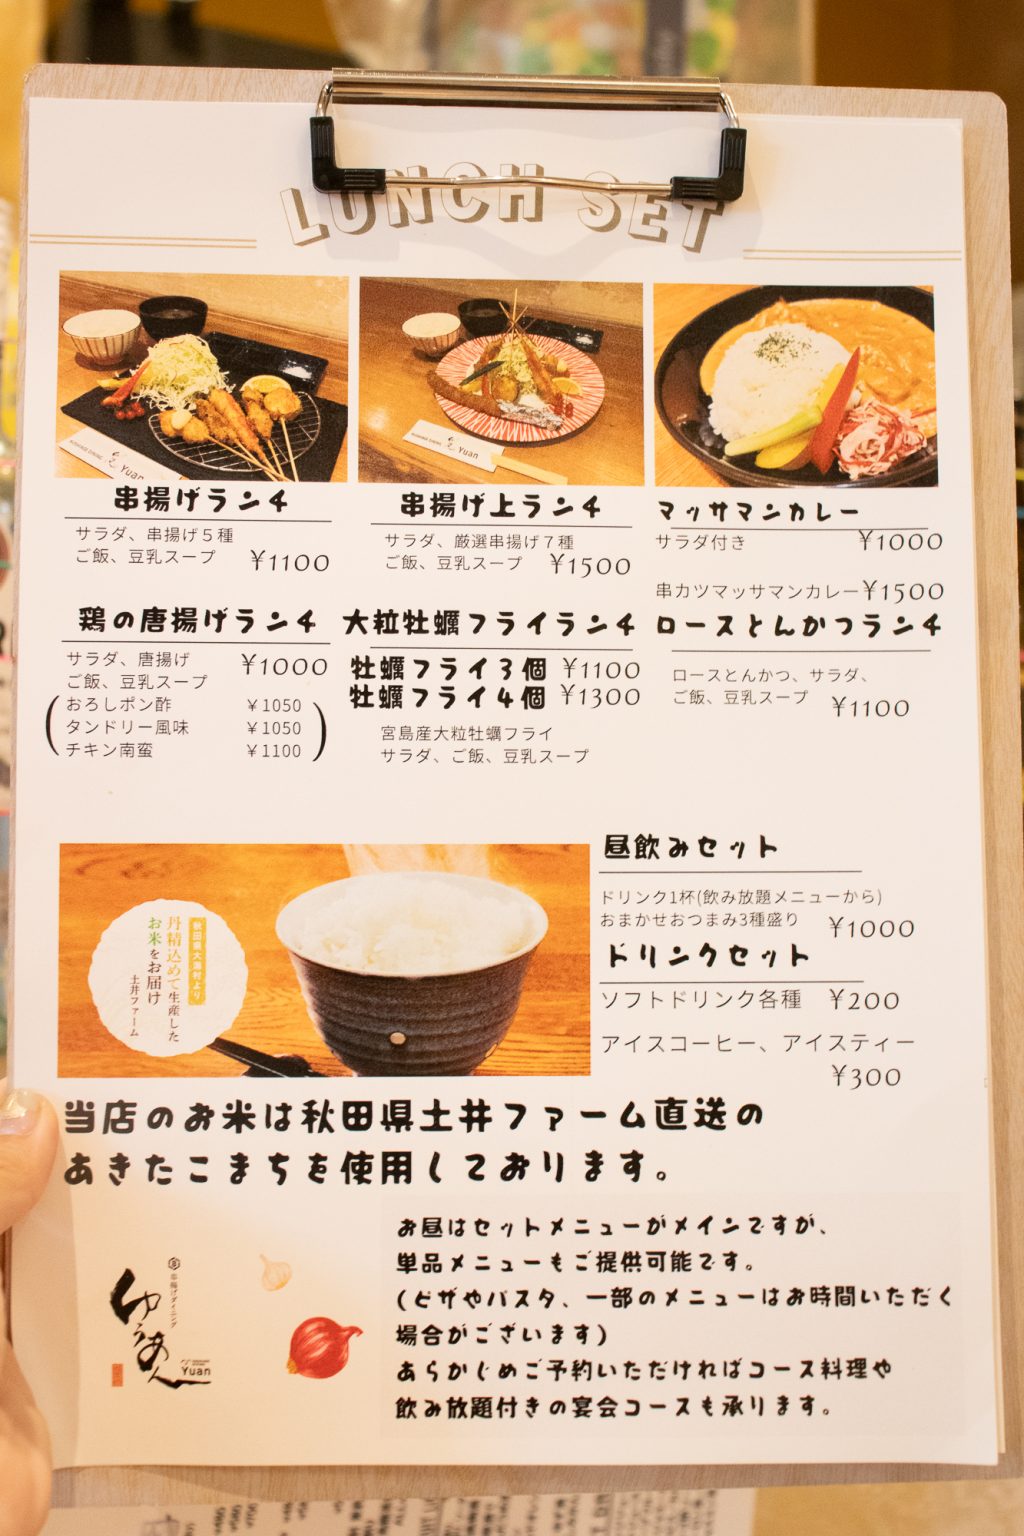 LUNCH SET
串揚げランチ
サラダ、串揚げ5種
ご飯、豆乳スープ ¥1100
串揚げ上ランチ
サラダ、厳選串揚げ7種
ご飯、豆乳スープ ¥1500
マッサマンカレー
サラダ付き ¥1000
串カツマッサマンカレー¥1500
鶏の唐揚げランチ
サラダ、唐揚げ ¥1000
ご飯、豆乳スープ
(おろしポン酢 ¥1050
タンドリー風味 ¥1050
チキン南蛮 ¥1100)
大粒牡蠣フライランチ
牡蠣フライ3個 ¥1100
牡蠣フライ4個 ¥1300
宮島産大粒牡蠣フライ
サラダ、ご飯、豆乳スープ
ロースとんかつランチ
ロースとんかつ、サラダ、
ご飯、豆乳スープ ¥1100
秋田県大潟村より
丹精込めて生産した
お米をお届け
土井ファーム
昼飲みセット
ドリンク1杯(飲み放題メニューから)
おまかせおつまみ3種盛り ¥1000
ドリンクセット
ソフトドリンク各種 ¥200
アイスコーヒー、アイスティー
¥300
当店のお米は秋田県土井ファーム直送の
あきたこまちを使用しております。
串揚げダイニング
ゆうあん
Yuan
お昼はセットメニューがメインですが、
単品メニューもご提供可能です。
(ピザやパスタ、一部のメニューはお時間いただく
場合がございます)
あらかじめご予約いただければコース料理や
飲み放題付きの宴会コースも承ります。